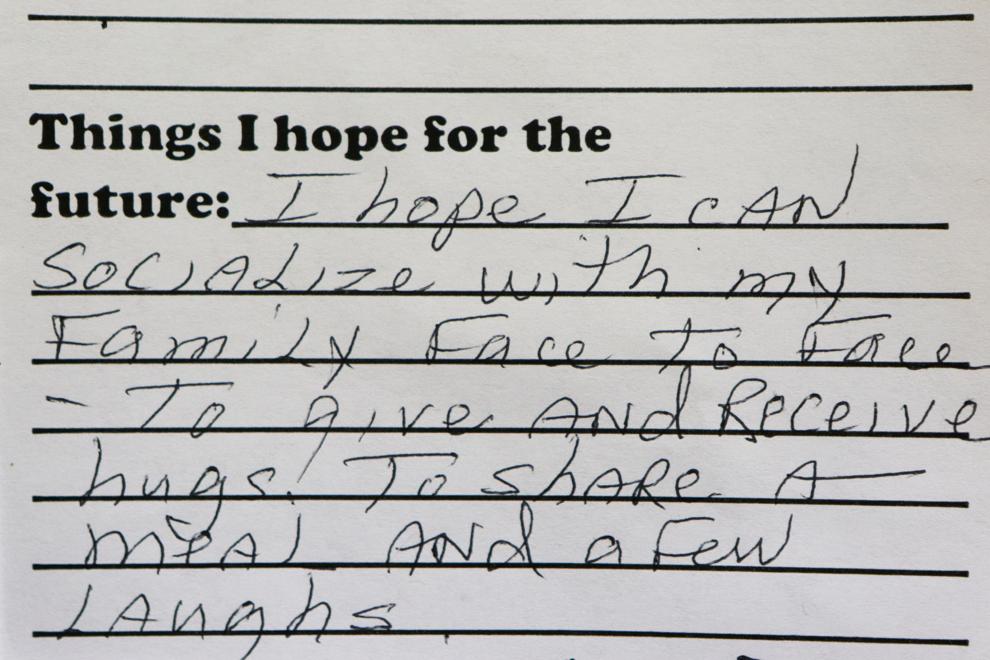 Things I hope for the
future: I hope I cAN
SociALize with my
FamiLy Face To Face
- To give ANd Receive
hugs. To shARe A
meAl ANd a Few
LAughs.